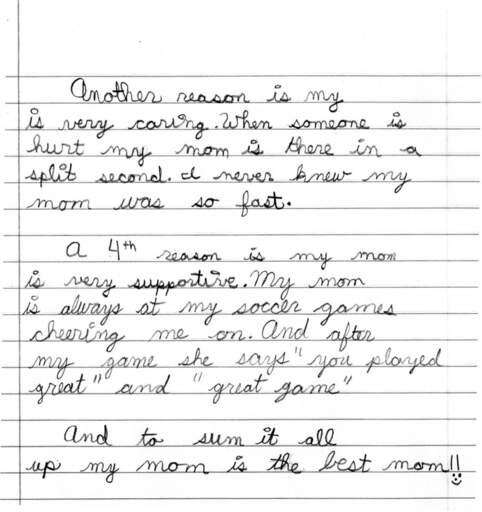 Another reason is my
is very caring. When someone is
hurt my mom is there in a
split second. I never knew my
mom was so fast.
A 4th reason is my mom
is very supportive. My mom
is always at my soccer games
cheering me on. And after
my game she says "you played
great" and "great game"
And to sum it all
up my mom is the best mom!!